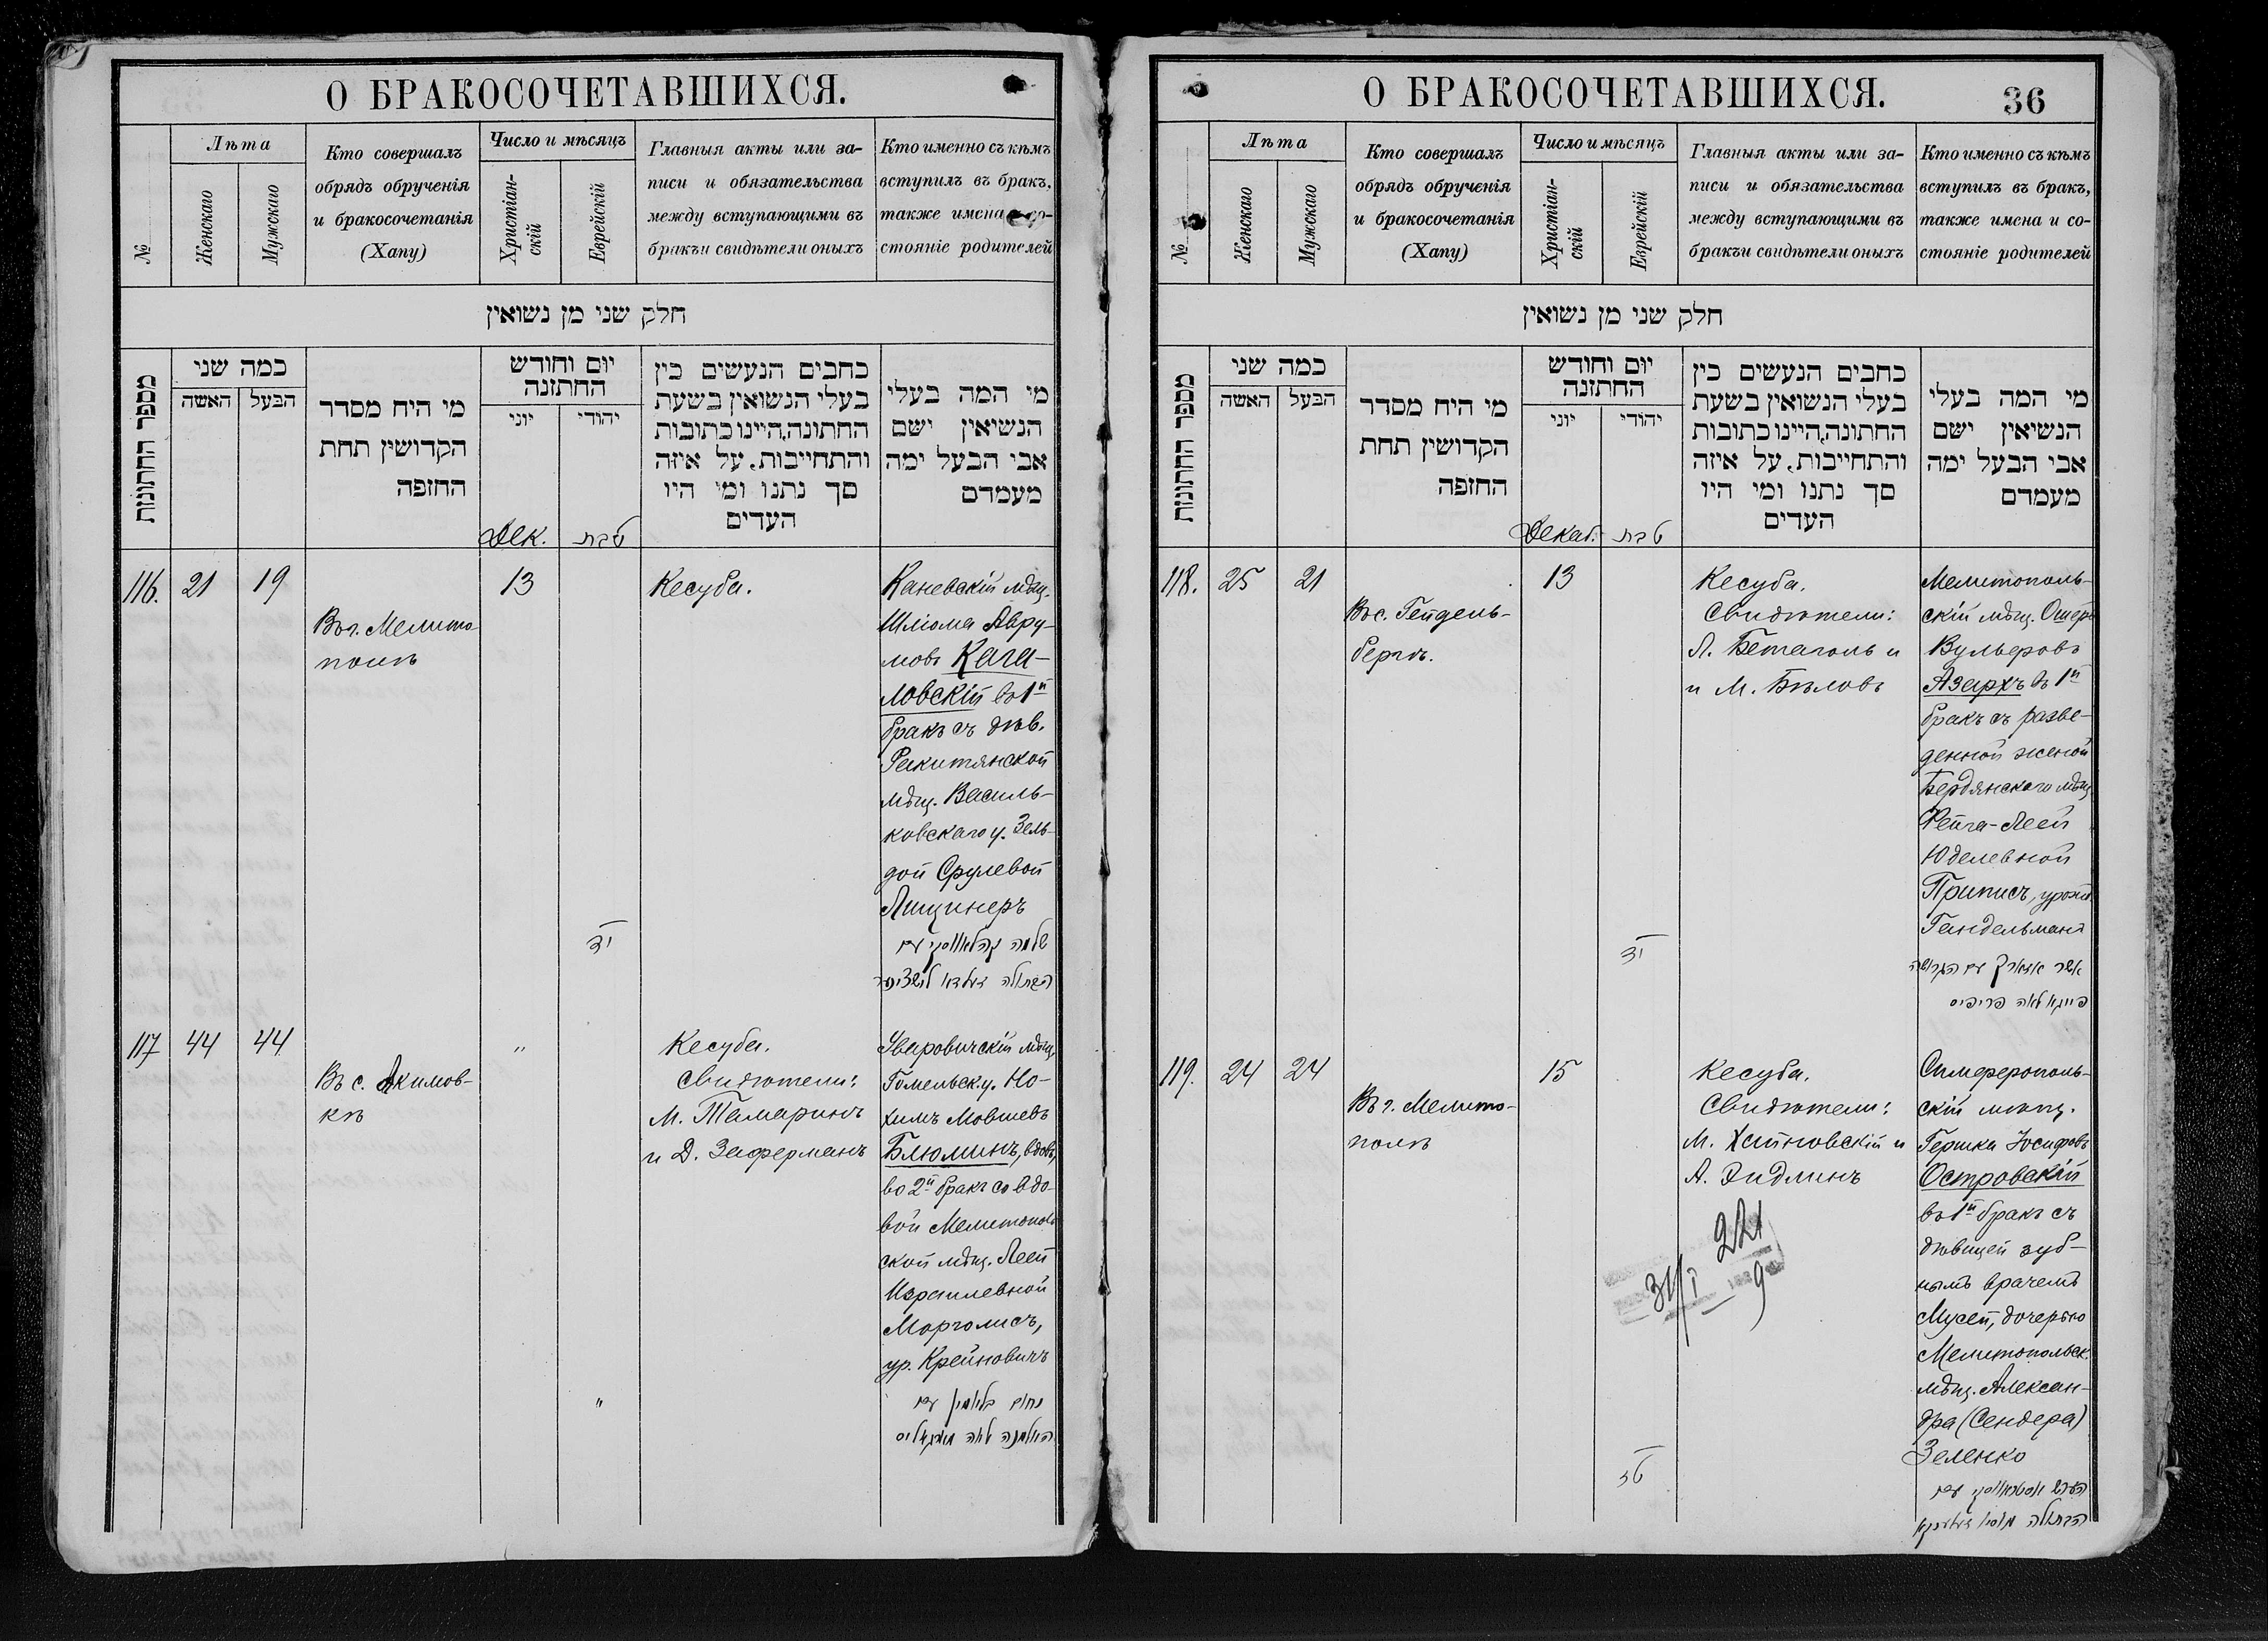 О БРАКОСОЧЕТАВШИХСЯ.
№
Лѣта
Женскаго
Мужскаго
Кто совершалъ
обрядъ обрученія
и бракосочетанія
(Хапу)
Число и мѣсяцъ
Христіан-
скій
Еврейскій
Главныя акты или за-
писи и обязательства
между вступающими въ
бракъи свидѣтели оныхъ
Кто именно съ кѣмъ
вступилъ въ бракъ,
также имена
стояніе родителей
חלק שני מן נשואין
מספר החתונות
כמה שני
האשה
הבעל
מי היח מסדר
הקדושין תחת
החזפה
יום וחודש
החתזנה
יוני
יהודי
Дек.
טבת
כחבים הנעשים כין
בעלי הנשואין בשעת
החתונה,היינו כתובות
והתחייבות, על איזה
סך נתנו ומי היו
העדים
מי המה בעלי
הנשיאין ישם
אבי הבעל ימה
מעמדם
116. 21 19
Въ г. Мелито-
полѣ
13
יד
Кесуба.
Каневскій мѣщ.
Шліома Авру-
мовъ Кага-
ловскій въ 1й
бракъ съ дѣв.
Ракитянской
мѣщ. Василь-
ковскаго у. Зель-
дой Срулевой
Лищинеръ
117 44 44
Въ с. Акимов-
кѣ
"
"
Кесуба.
Свидѣтели:
М. Тамаринъ
и Д. Заферманъ
Уваровичскій мѣщ.
Гомельск. у. Но-
химъ Мовшевъ
Блюминъ, вдов.,
во 2й бракъ со вдо-
вой Мелитополь
ской мѣщ. Леей
Израилевной
Марголисъ,
ур. Крейновичъ
נחום בלומין עם
האלמנה לאה מארגאליס
О БРАКОСОЧЕТАВШИХСЯ.
36
№
Лѣта
Женскаго
Мужскаго
Кто совершалъ
обрядъ обрученія
и бракосочетанія
(Хапу)
Число и мѣсяцъ
Христіан-
скій
Еврейскій
Главныя акты или за-
писи и обязательства
между вступающими въ
бракъи свидѣтели оныхъ
Кто именно съ кѣмъ
вступилъ въ бракъ,
также имена и со-
стояніе родителей
חלק שני מן נשואין
מספר החתונות
כמה שני
האשה
הבעל
מי היח מסדר
הקדושין תחת
החזפה
יום וחודש
החתזנה
יוני
יהודי
Декаб.
טבת
כחבים הנעשים כין
בעלי הנשואין בשעת
החתונה,היינו כתובות
והתחייבות, על איזה
סך נתנו ומי היו
העדים
מי המה בעלי
הנשיאין ישם
אבי הבעל ימה
מעמדם
118. 25 21
Въ с. Гейдель-
бергѣ.
13
יד
Кесуба.
Свидѣтели:
Л. Бетаголь и
и М. Бѣловъ
Мелитополь-
скій мѣщ. Ошеръ
Вульфовъ
Азархъ въ 1й
бракъ съ разве-
денной женой
Бердянскаго мѣщ.
Фейга-Леей
Юделевной
Приписъ, урожд.
Гандельманъ
אשר אזארך עם הגרושה
פייגא לאה פריפיס
119. 24 24
Въ г. Мелито-
полѣ
15
טז
Кесуба.
Свидѣтели:
М. Хайновскій и
А. Эйдлинъ
221
31/I 9
Симферополь-
скій мѣщ.
Гершка Іосифовъ
Островскій
въ 1й бракъ съ
дѣвицей зуб-
нымъ врачемъ
Мусей, дочерью
Мелитопольск.
мѣщ. Алексан-
дра (Сендера)
Зеленко